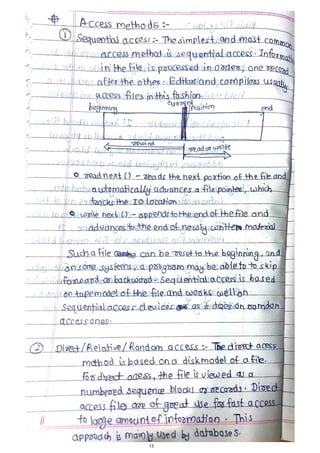 Access methods :-
① Sequential access :- The simplest and most common
access method is sequential access. Informati
in the file is processed in order, one record
after the other. Editor and compilers usually
access files in this fashion.
beginning current position end
rewind read or write
o read next () - reads the next portion of the file and
automatically advances a file pointer, which
tracks the IO location
o write next () - appends to the end of the file and
advances to the end of newly written material
Such a file can be reset to the beginning, and
on some systems, a program may be able to to skip
forward or backward. Sequential access is based
on tape model of the file and works well on
sequential access devices as it does on random
access ones.
② Direct / Relative / Random access :- The direct access
method is based on a disk model of a file.
For direct access, the file is viewed as a
numbered sequence blocks or records. Direct
access files are of great use for fast access
to large amount of information. This
approach is mainly used by databases.